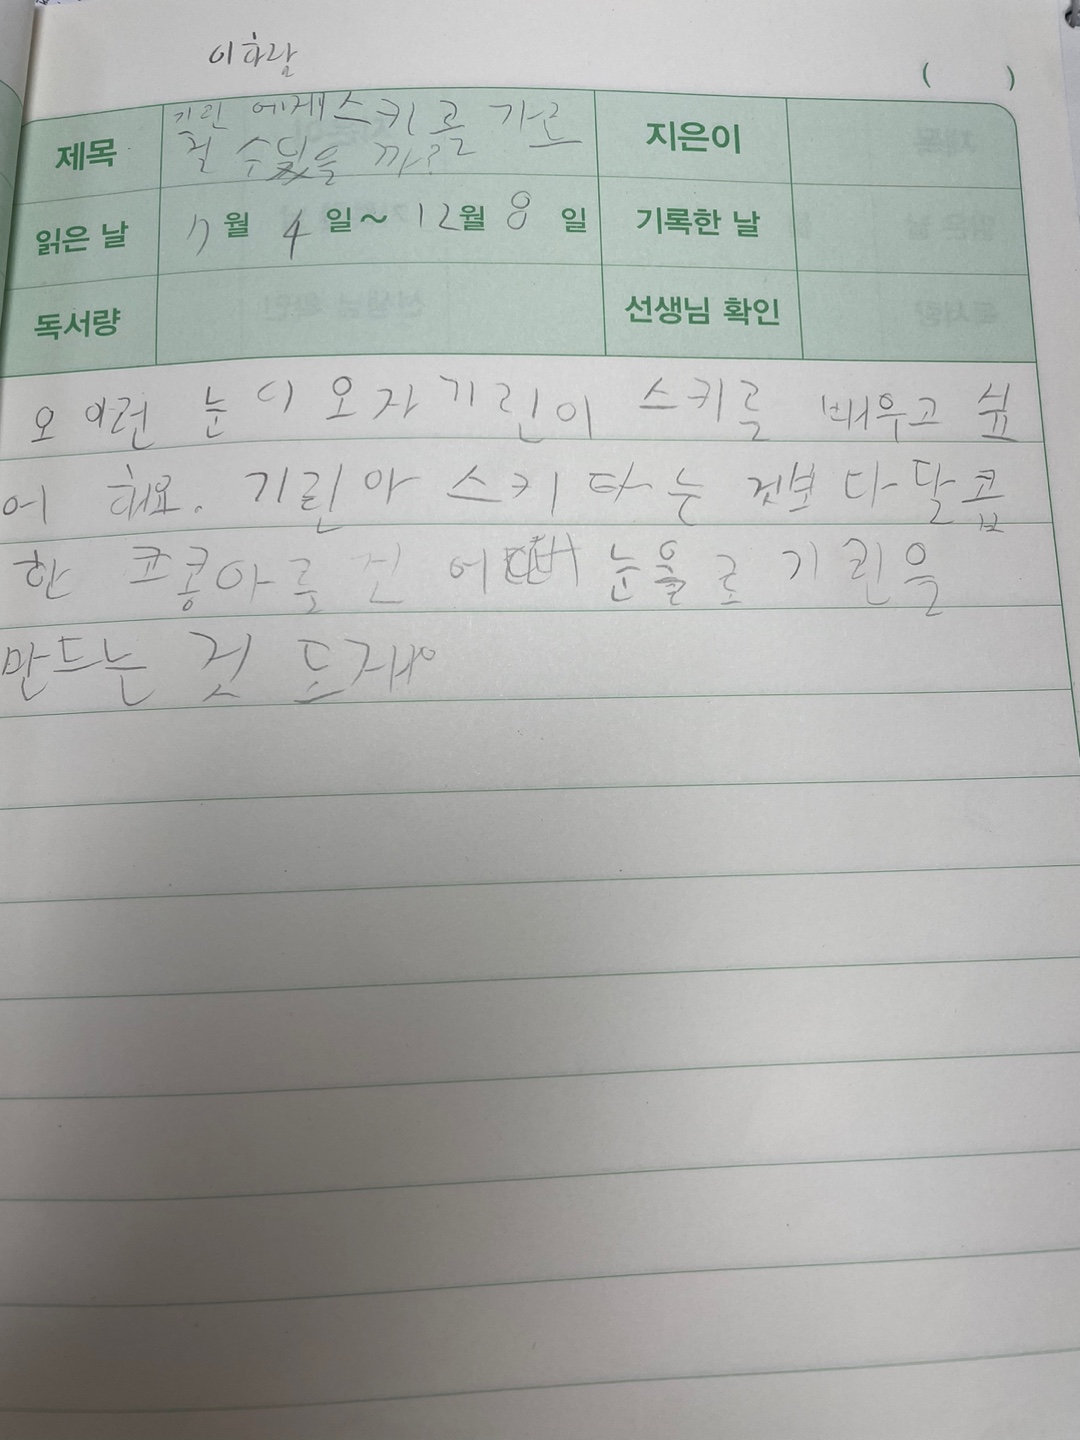 이하람
( )
제목 기린 에게스키를 가르 지은이
칠 수있을 까?
읽은 날 11월 4일~12월 8일 기록한 날
독서량 선생님 확인
오 이런 눈 이 오자 기린이 스키를 배우고 싶
어 해요. 기린아 스키 타는 것보다 달콤
한 코콩아를 건 어때 눈을로 기린을
만드는 것 도재